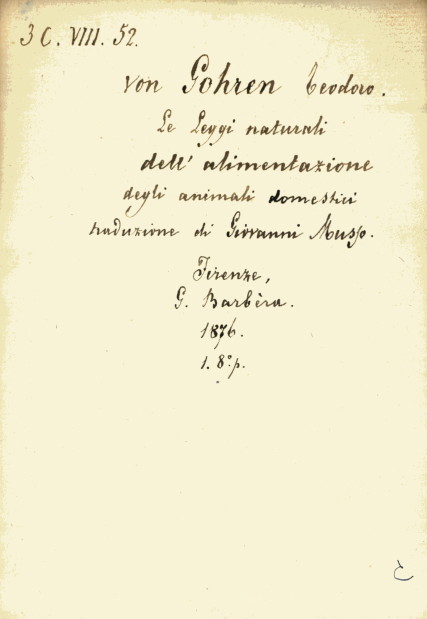 3 C. VIII. 52.
von Gohren Teodoro.
Le Leggi naturali
dell' alimentazione
degli animali domestici
traduzione di Giovanni Musso.
Firenze,
G. Barbèra.
1876.
1. 8.º p.